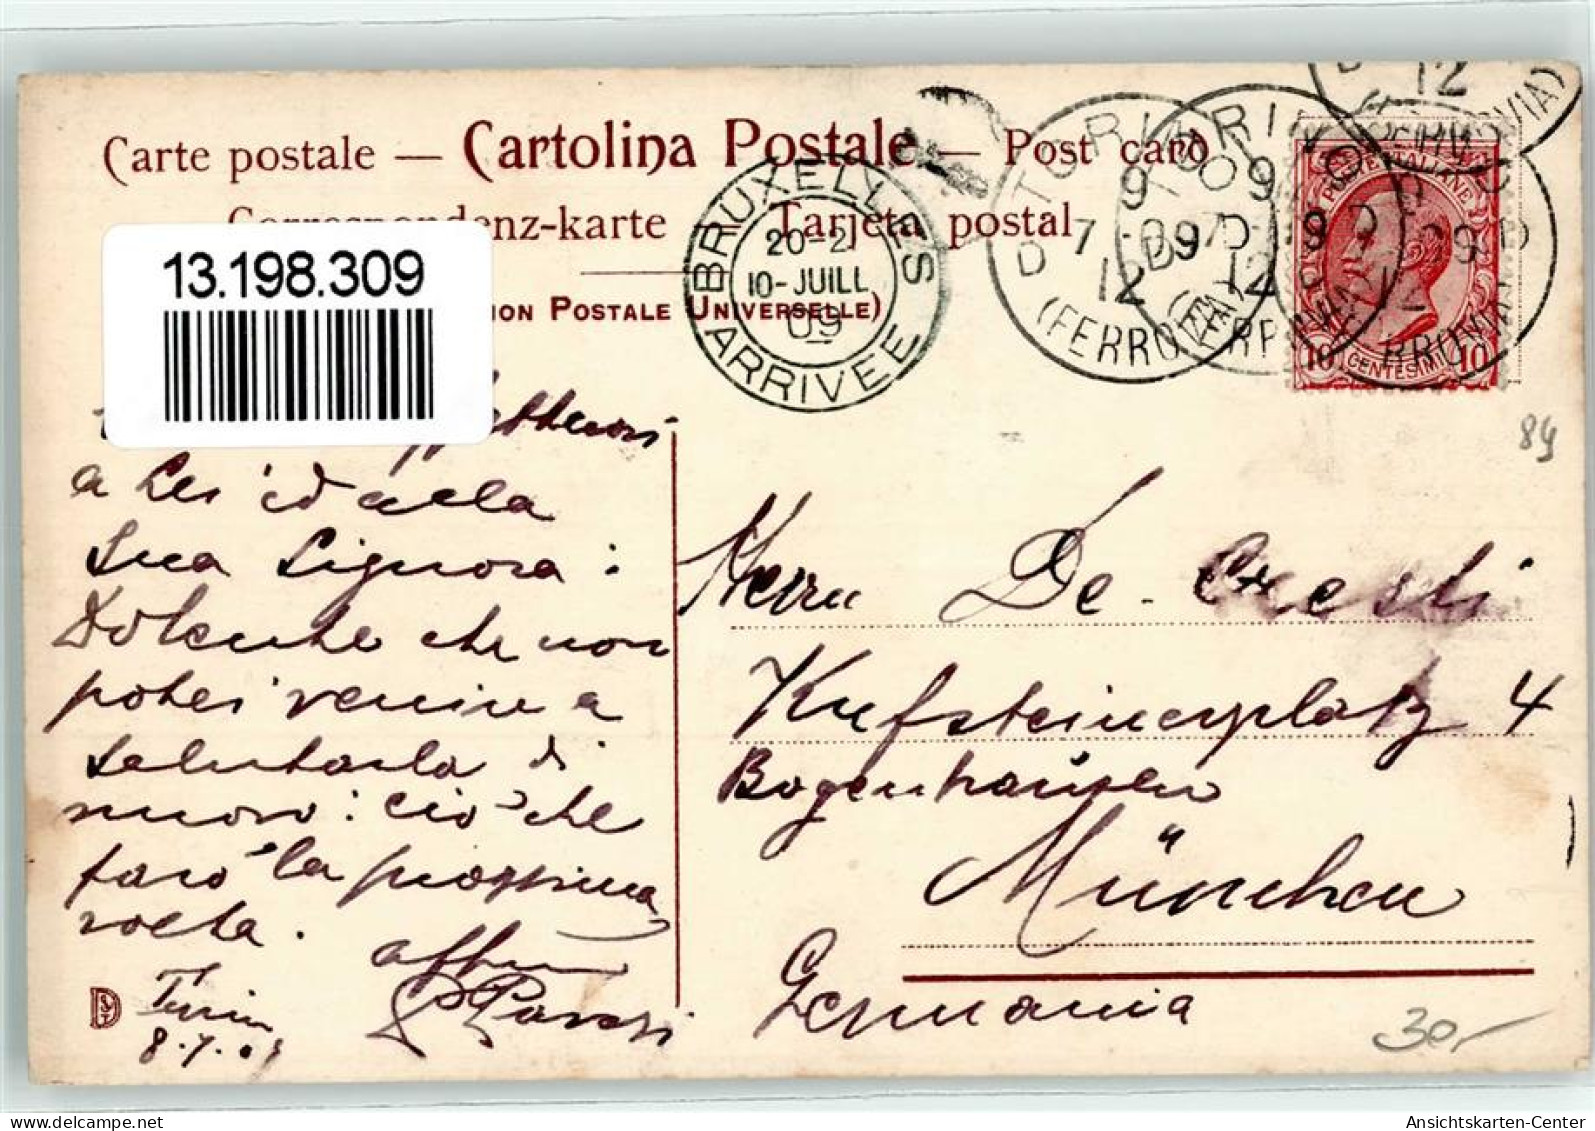 Carte postale — Cartolina Postale — Post card
Correspondenz-karte Tarjeta postal
ION POSTALE UNIVERSELLE)
13.198.309
BRUXELLES
20-2
10-JUILL
09
ARRIVEE
TORINO
(FERROVIA)
9 7 09
12
POSTE ITALIANE
10 CENTESIMI 10
84
a Lei ed alla
Sua Signora :
Dolente che non
potei venire a
salutarla di
nuovo : ciò che
farò la prossima
volta.
Torino
8.7.09
Herrn De-
Kufsteinerplatz 4
Bogenhausen
München
Germania
30,-
AnsichtsKarten-Center